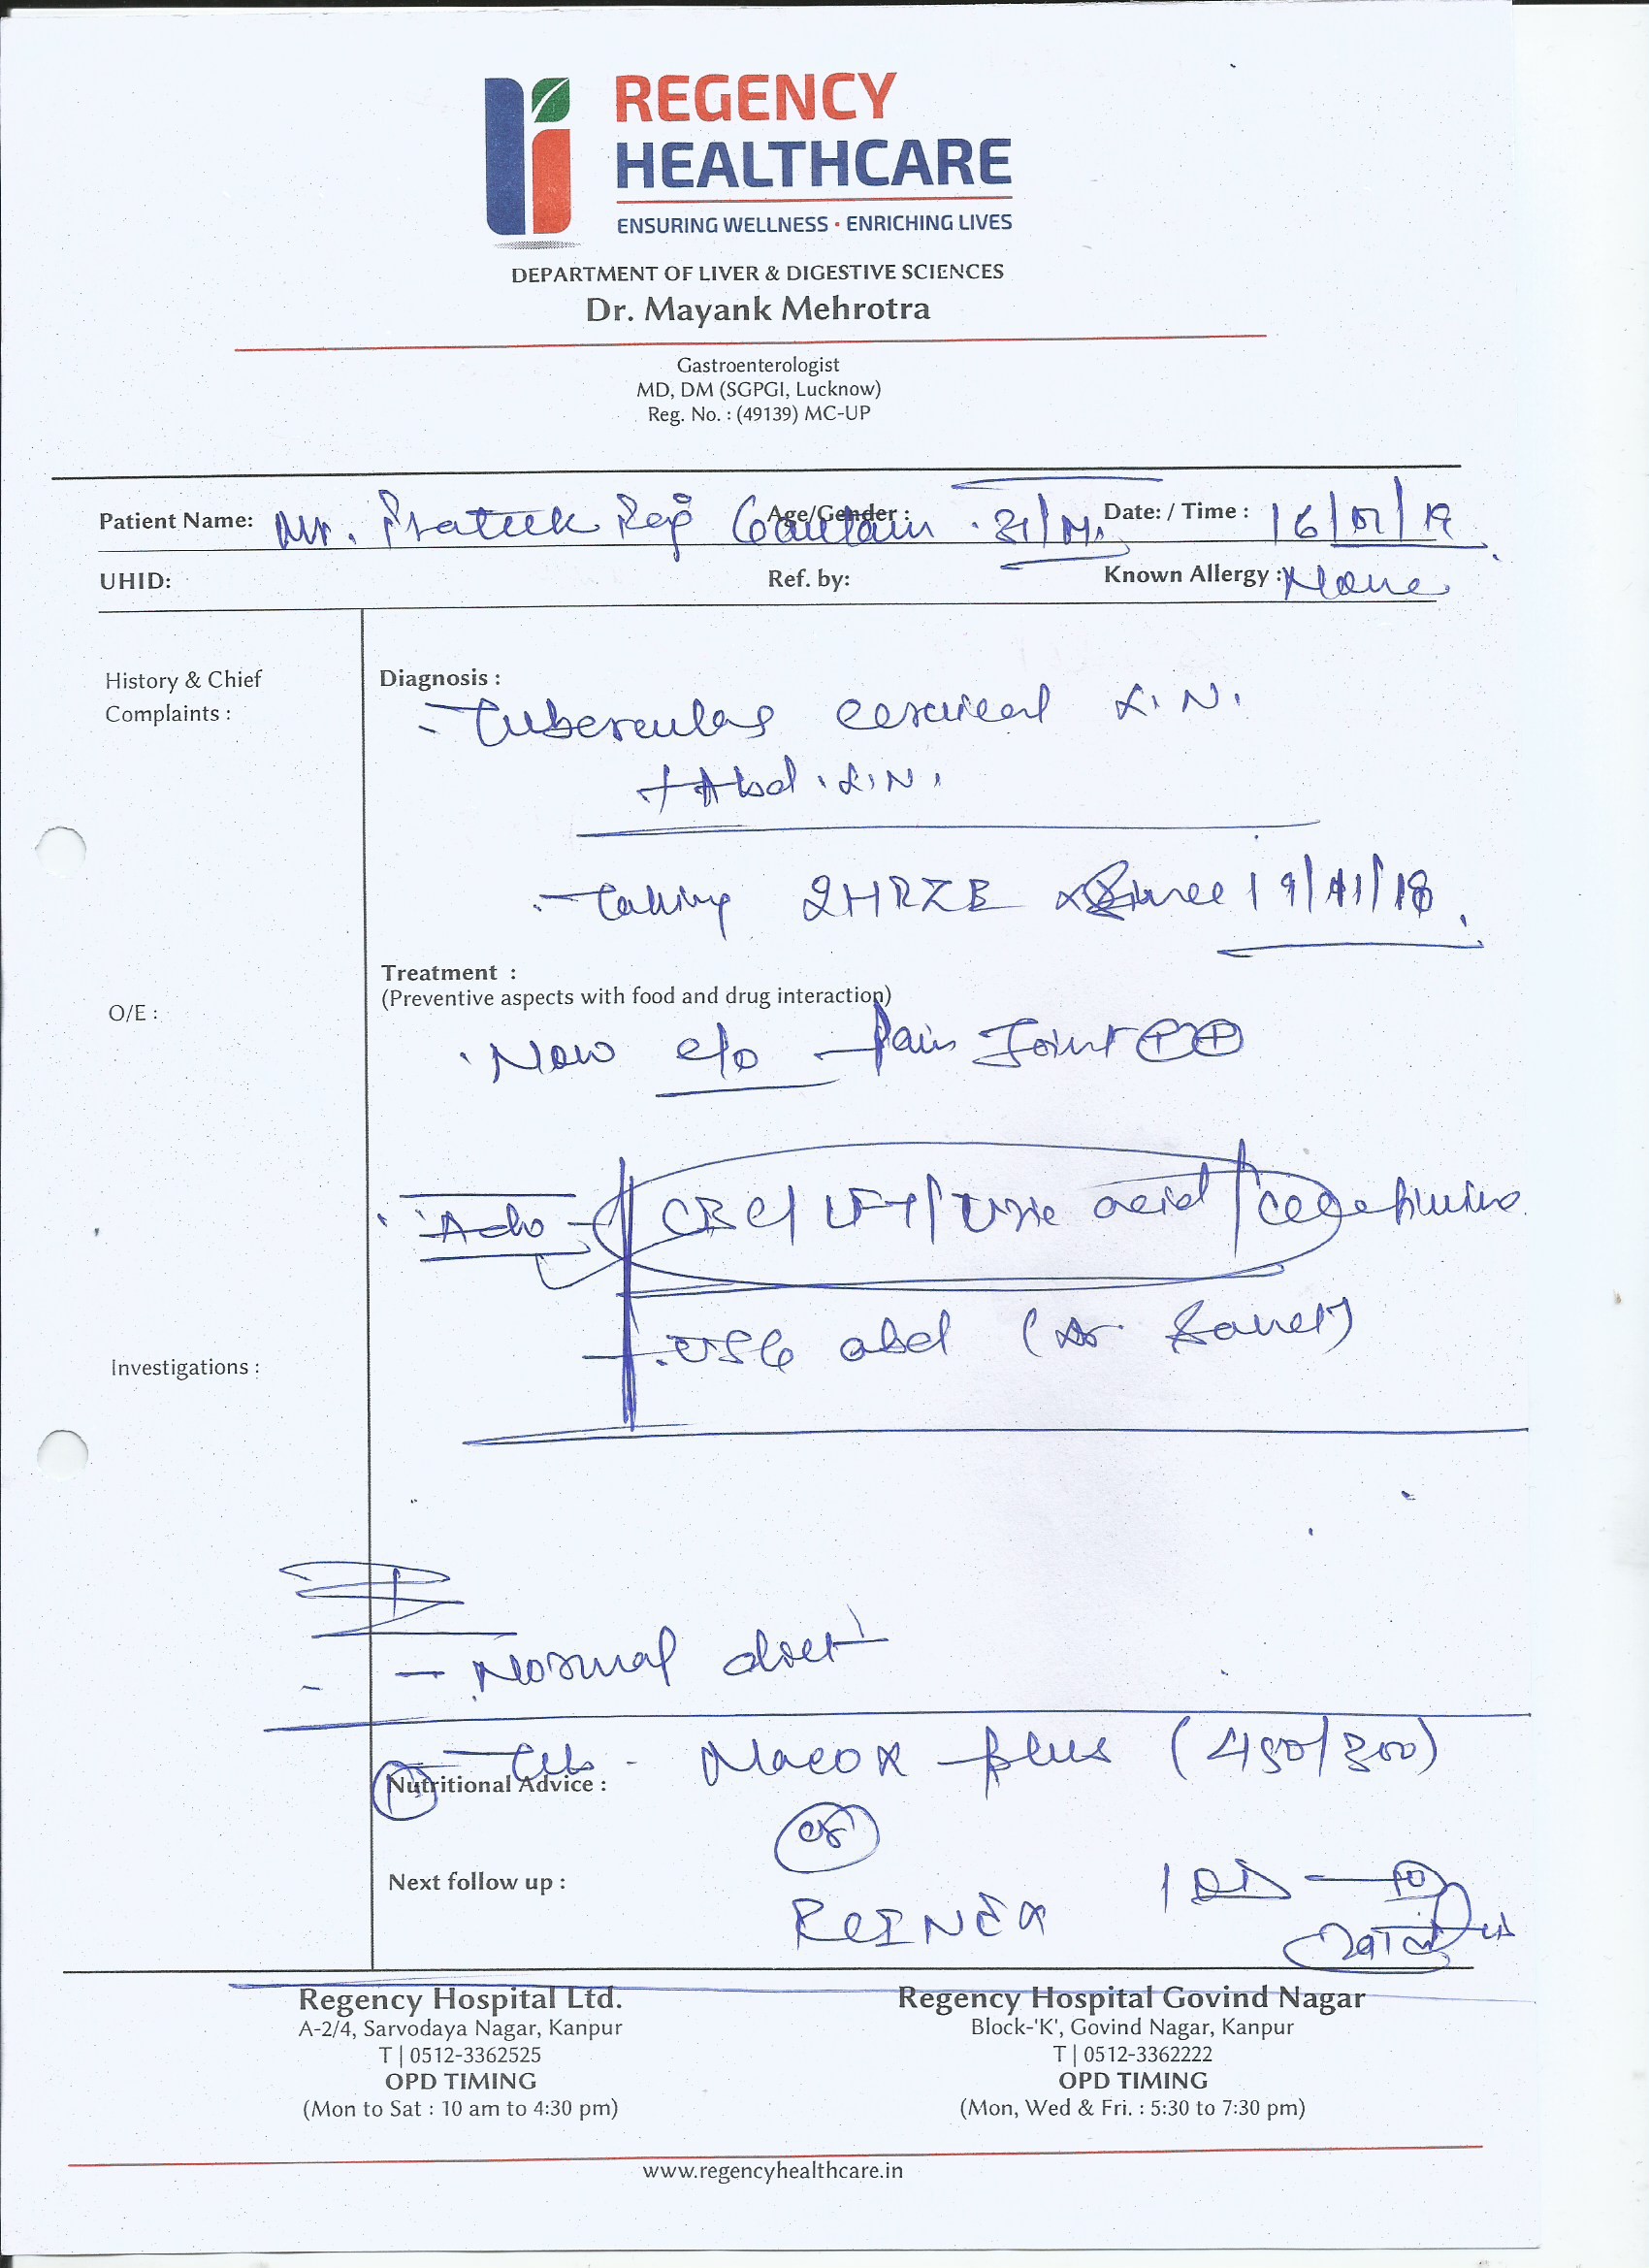 REGENCY
HEALTHCARE
ENSURING WELLNESS · ENRICHING LIVES
DEPARTMENT OF LIVER & DIGESTIVE SCIENCES
Dr. Mayank Mehrotra
Gastroenterologist
MD, DM (SGPGI, Lucknow)
Reg. No. : (49139) MC-UP
Patient Name: Mr. Prateek Raj Gautam Age/Gender : 31/M. Date: / Time : 16/01/19
UHID: Ref. by: Known Allergy : None
History & Chief
Complaints :
Diagnosis :
- Tubercular cervical L.N.
+ Abd. L.N.
- Taking 2HRZE Since 19/11/18
O/E :
Treatment :
(Preventive aspects with food and drug interaction)
Now c/o Pain Joint ++
CBC/ LFT/ Uric acid/
Investigations :
USG abd (Dr
- Normal diet
- Tab - Macox plus (450/300)
Nutritional Advice :
or
Next follow up :
RCINEX 1 OD
Regency Hospital Ltd.
A-2/4, Sarvodaya Nagar, Kanpur
T | 0512-3362525
OPD TIMING
(Mon to Sat : 10 am to 4:30 pm)
Regency Hospital Govind Nagar
Block-'K', Govind Nagar, Kanpur
T | 0512-3362222
OPD TIMING
(Mon, Wed & Fri. : 5:30 to 7:30 pm)
www.regencyhealthcare.in